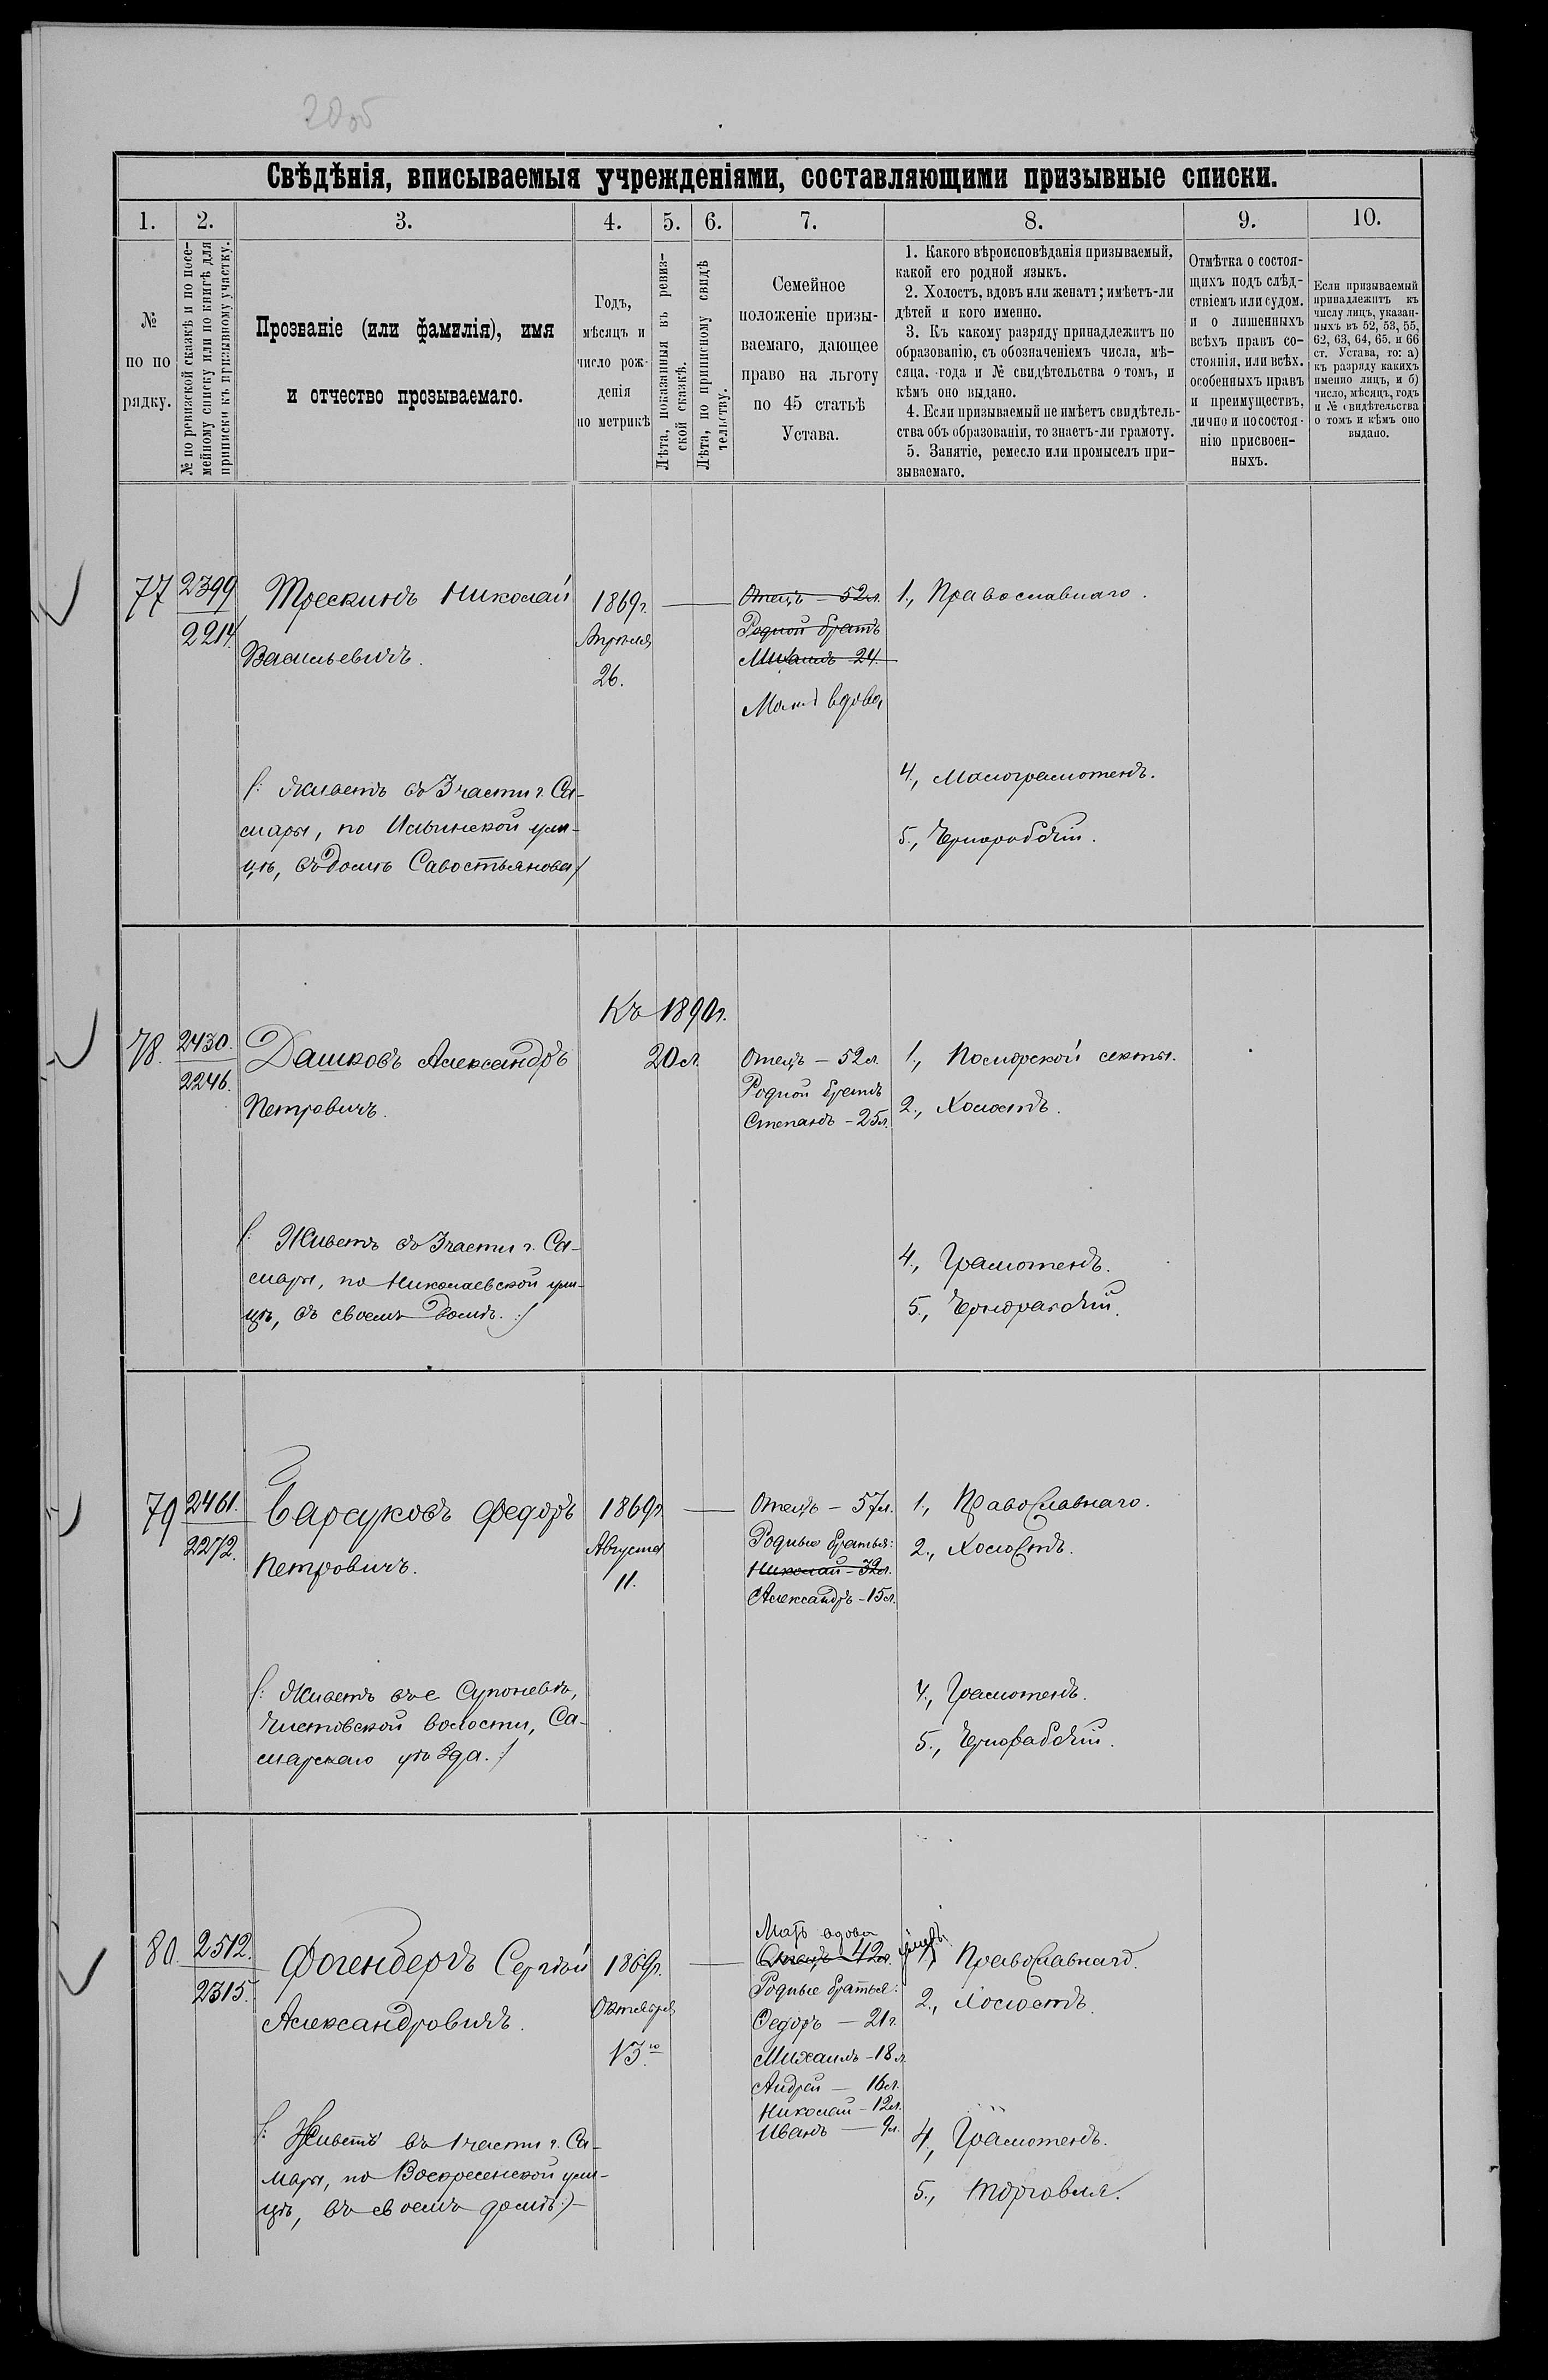 20об
Свѣдѣнія, вписываемыя учрежденіями, составляющими призывные списки.
1. 2. 3. 4. 5. 6. 7. 8. 9. 10.
№
по по
рядку.
№ по ревизской сказкѣ и по посе-
мейному списку или по книгѣ для
приписки къ призывному участку.
Прозваніе (или фамилія), имя
и отчество прозываемаго.
Годъ,
мѣсяцъ и
число рож-
денія
по метрикѣ
Лѣта, показанныя въ ревиз-
ской сказкѣ.
Лѣта, по приписному свидѣ
тельству.
Семейное
положеніе призы-
ваемаго, дающее
право на льготу
по 45 статьѣ
Устава.
1. Какого вѣроисповѣданія призываемый,
какой его родной языкъ.
2. Холостъ, вдовъ или женатъ; имѣетъ-ли
дѣтей и кого именно.
3. Къ какому разряду принадлежитъ по
образованію, съ обозначеніемъ числа, мѣ-
сяца, года и № свидѣтельства о томъ, и
кѣмъ оно выдано.
4. Если призываемый не имѣетъ свидѣтель-
ства объ образованіи, то знаетъ-ли грамоту.
5. Занятіе, ремесло или промыселъ при-
зываемаго.
Отмѣтка о состоя-
щихъ подъ слѣд-
ствіемъ или судом.
и о лишенныхъ
всѣхъ правъ со-
стоянія, или всѣх.
особенныхъ правъ
и преимуществъ,
лично и по состоя-
нію присвоен-
ныхъ.
Если призываемый
принадлежитъ къ
числу лицъ, указан-
ныхъ въ 52, 53, 55,
62, 63, 64, 65. и 66
ст. Устава, то: а)
къ разряду какихъ
именно лицъ, и б)
число, мѣсяцъ, годъ
и № свидѣтельства
о томъ и кѣмъ оно
выдано.
77
2399
2214.
Трескинъ Николай
Васильевичъ.
(: Живетъ въ 3 части г. Са-
мары, по Ильинской ули-
цѣ, въ домѣ Савостьянова :)
1869г.
Апрѣля
26.
Отецъ – 52л.
Родной братъ
Михаилъ 24.
Мать вдова
1., Православнаго.
4., Малограмотенъ.
5., Чернорабочій.
78.
2430.
2246.
Дашковъ Александръ
Петровичъ.
(: Живетъ въ 3 части г. Са-
мары, по Николаевской ули-
цѣ, въ своемъ домѣ. :)
Къ 1890г.
20л.
Отецъ – 52л.
Родной братъ
Степанъ – 25л.
1., Поморской секты.
2., Холостъ.
4., Грамотенъ.
5., Чернорабочій.
79
2461.
2272.
Барсуковъ Федоръ
Петровичъ.
(: Живетъ въ с Супоневѣ,
Чистовской волости, Са-
марскаго уѣзда. :)
1869г.
Августа
11.
Отецъ – 57л.
Родные братья:
Николай – 32л.
Александръ – 15л.
1., Православнаго.
2., Холостъ.
4., Грамотенъ.
5., Чернорабочій.
80.
2512.
2315.
Фогендердъ Сергѣй
Александровичъ.
(: Живетъ въ 1 части г. Са-
мары, по Воскресенской ули-
цѣ, въ своемъ домѣ :)
1869г.
Октября
13го
Мать вдова
Отецъ 42л.
Родные братья:
Федоръ – 21г.
Михаилъ – 18л.
Андрей – 16л.
Николай – 12л.
Иванъ – 9л.
1., Православнаго.
2., Холостъ.
4., Грамотенъ.
5., Торговля.